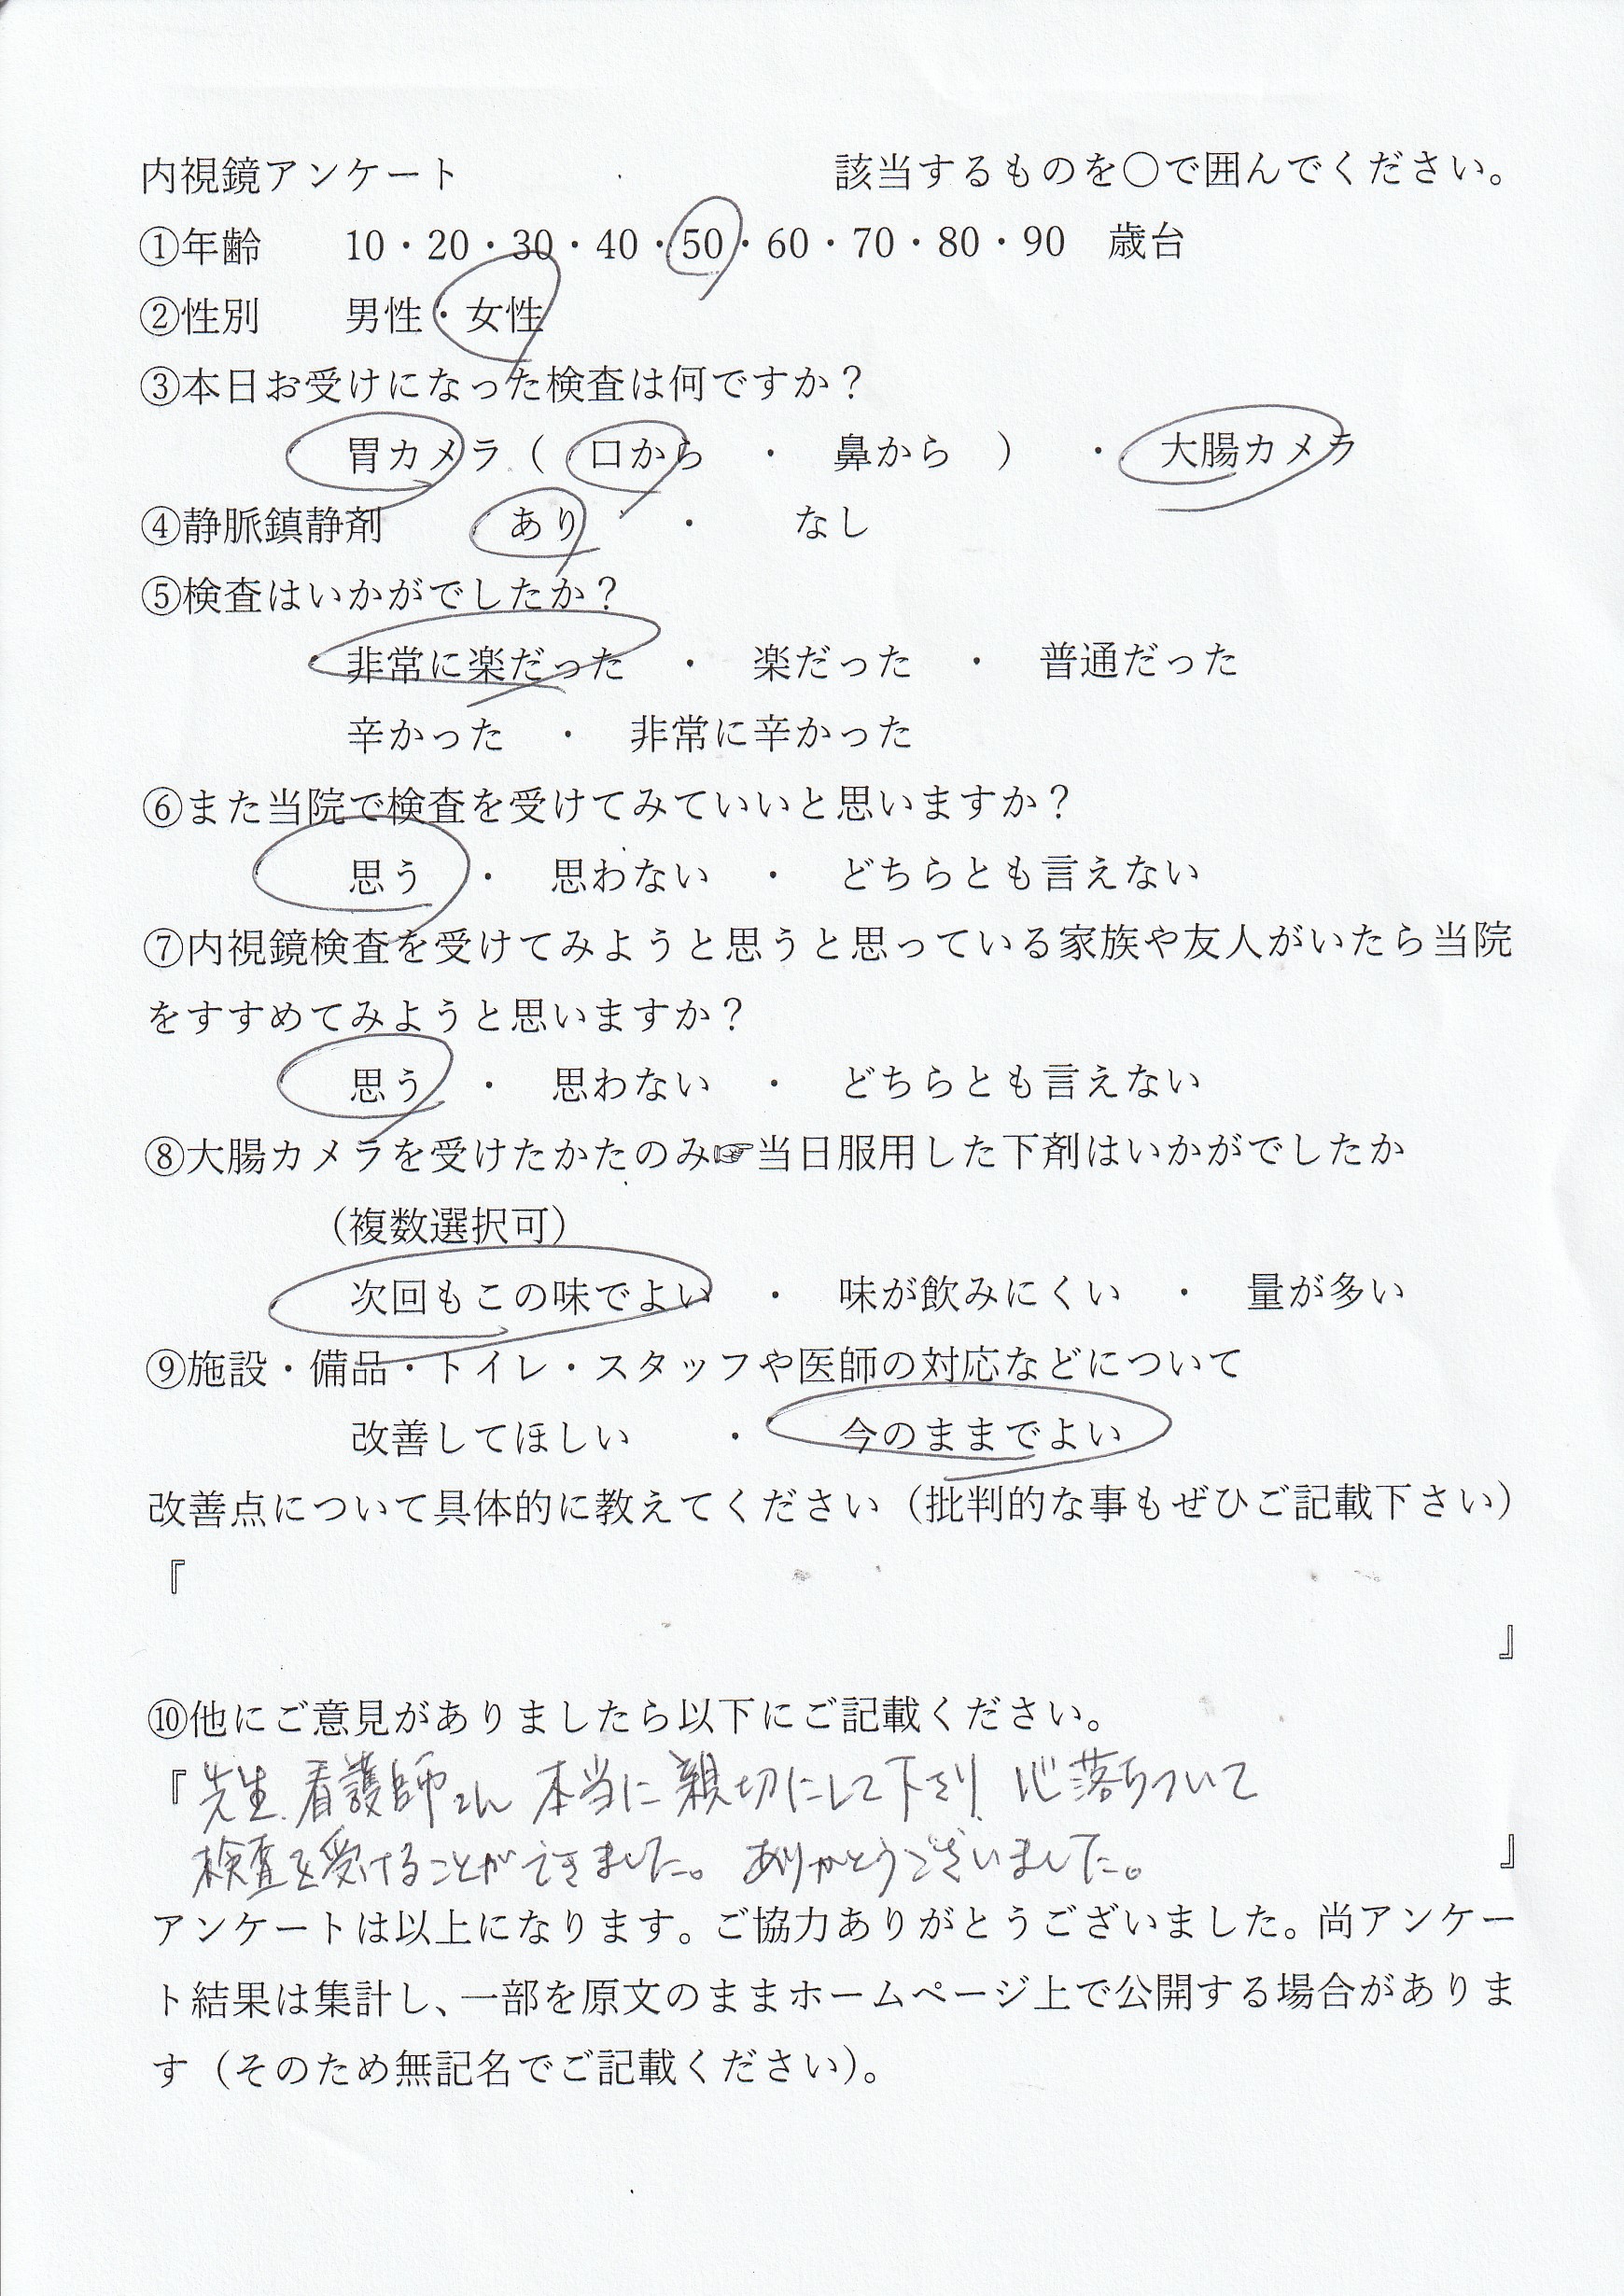 内視鏡アンケート　該当するものを〇で囲んでください。
①年齢　10・20・30・40・50・60・70・80・90　歳台
②性別　男性・女性
③本日お受けになった検査は何ですか？
胃カメラ（　口から　・　鼻から　）　・　大腸カメラ
④静脈鎮静剤　あり　・　なし
⑤検査はいかがでしたか？
非常に楽だった　・　楽だった　・　普通だった
辛かった　・　非常に辛かった
⑥また当院で検査を受けてみていいと思いますか？
思う　・　思わない　・　どちらとも言えない
⑦内視鏡検査を受けてみようと思うと思っている家族や友人がいたら当院
をすすめてみようと思いますか？
思う　・　思わない　・　どちらとも言えない
⑧大腸カメラを受けたかたのみ☞当日服用した下剤はいかがでしたか
（複数選択可）
次回もこの味でよい　・　味が飲みにくい　・　量が多い
⑨施設・備品・トイレ・スタッフや医師の対応などについて
改善してほしい　・　今のままでよい
改善点について具体的に教えてください（批判的な事もぜひご記載下さい）
『
』
⑩他にご意見がありましたら以下にご記載ください。
『先生、看護師さん 本当に親切にして下さり、心落ちついて
検査を受けることができました。ありがとうございました。』
アンケートは以上になります。ご協力ありがとうございました。尚アンケー
ト結果は集計し、一部を原文のままホームページ上で公開する場合がありま
す（そのため無記名でご記載ください）。